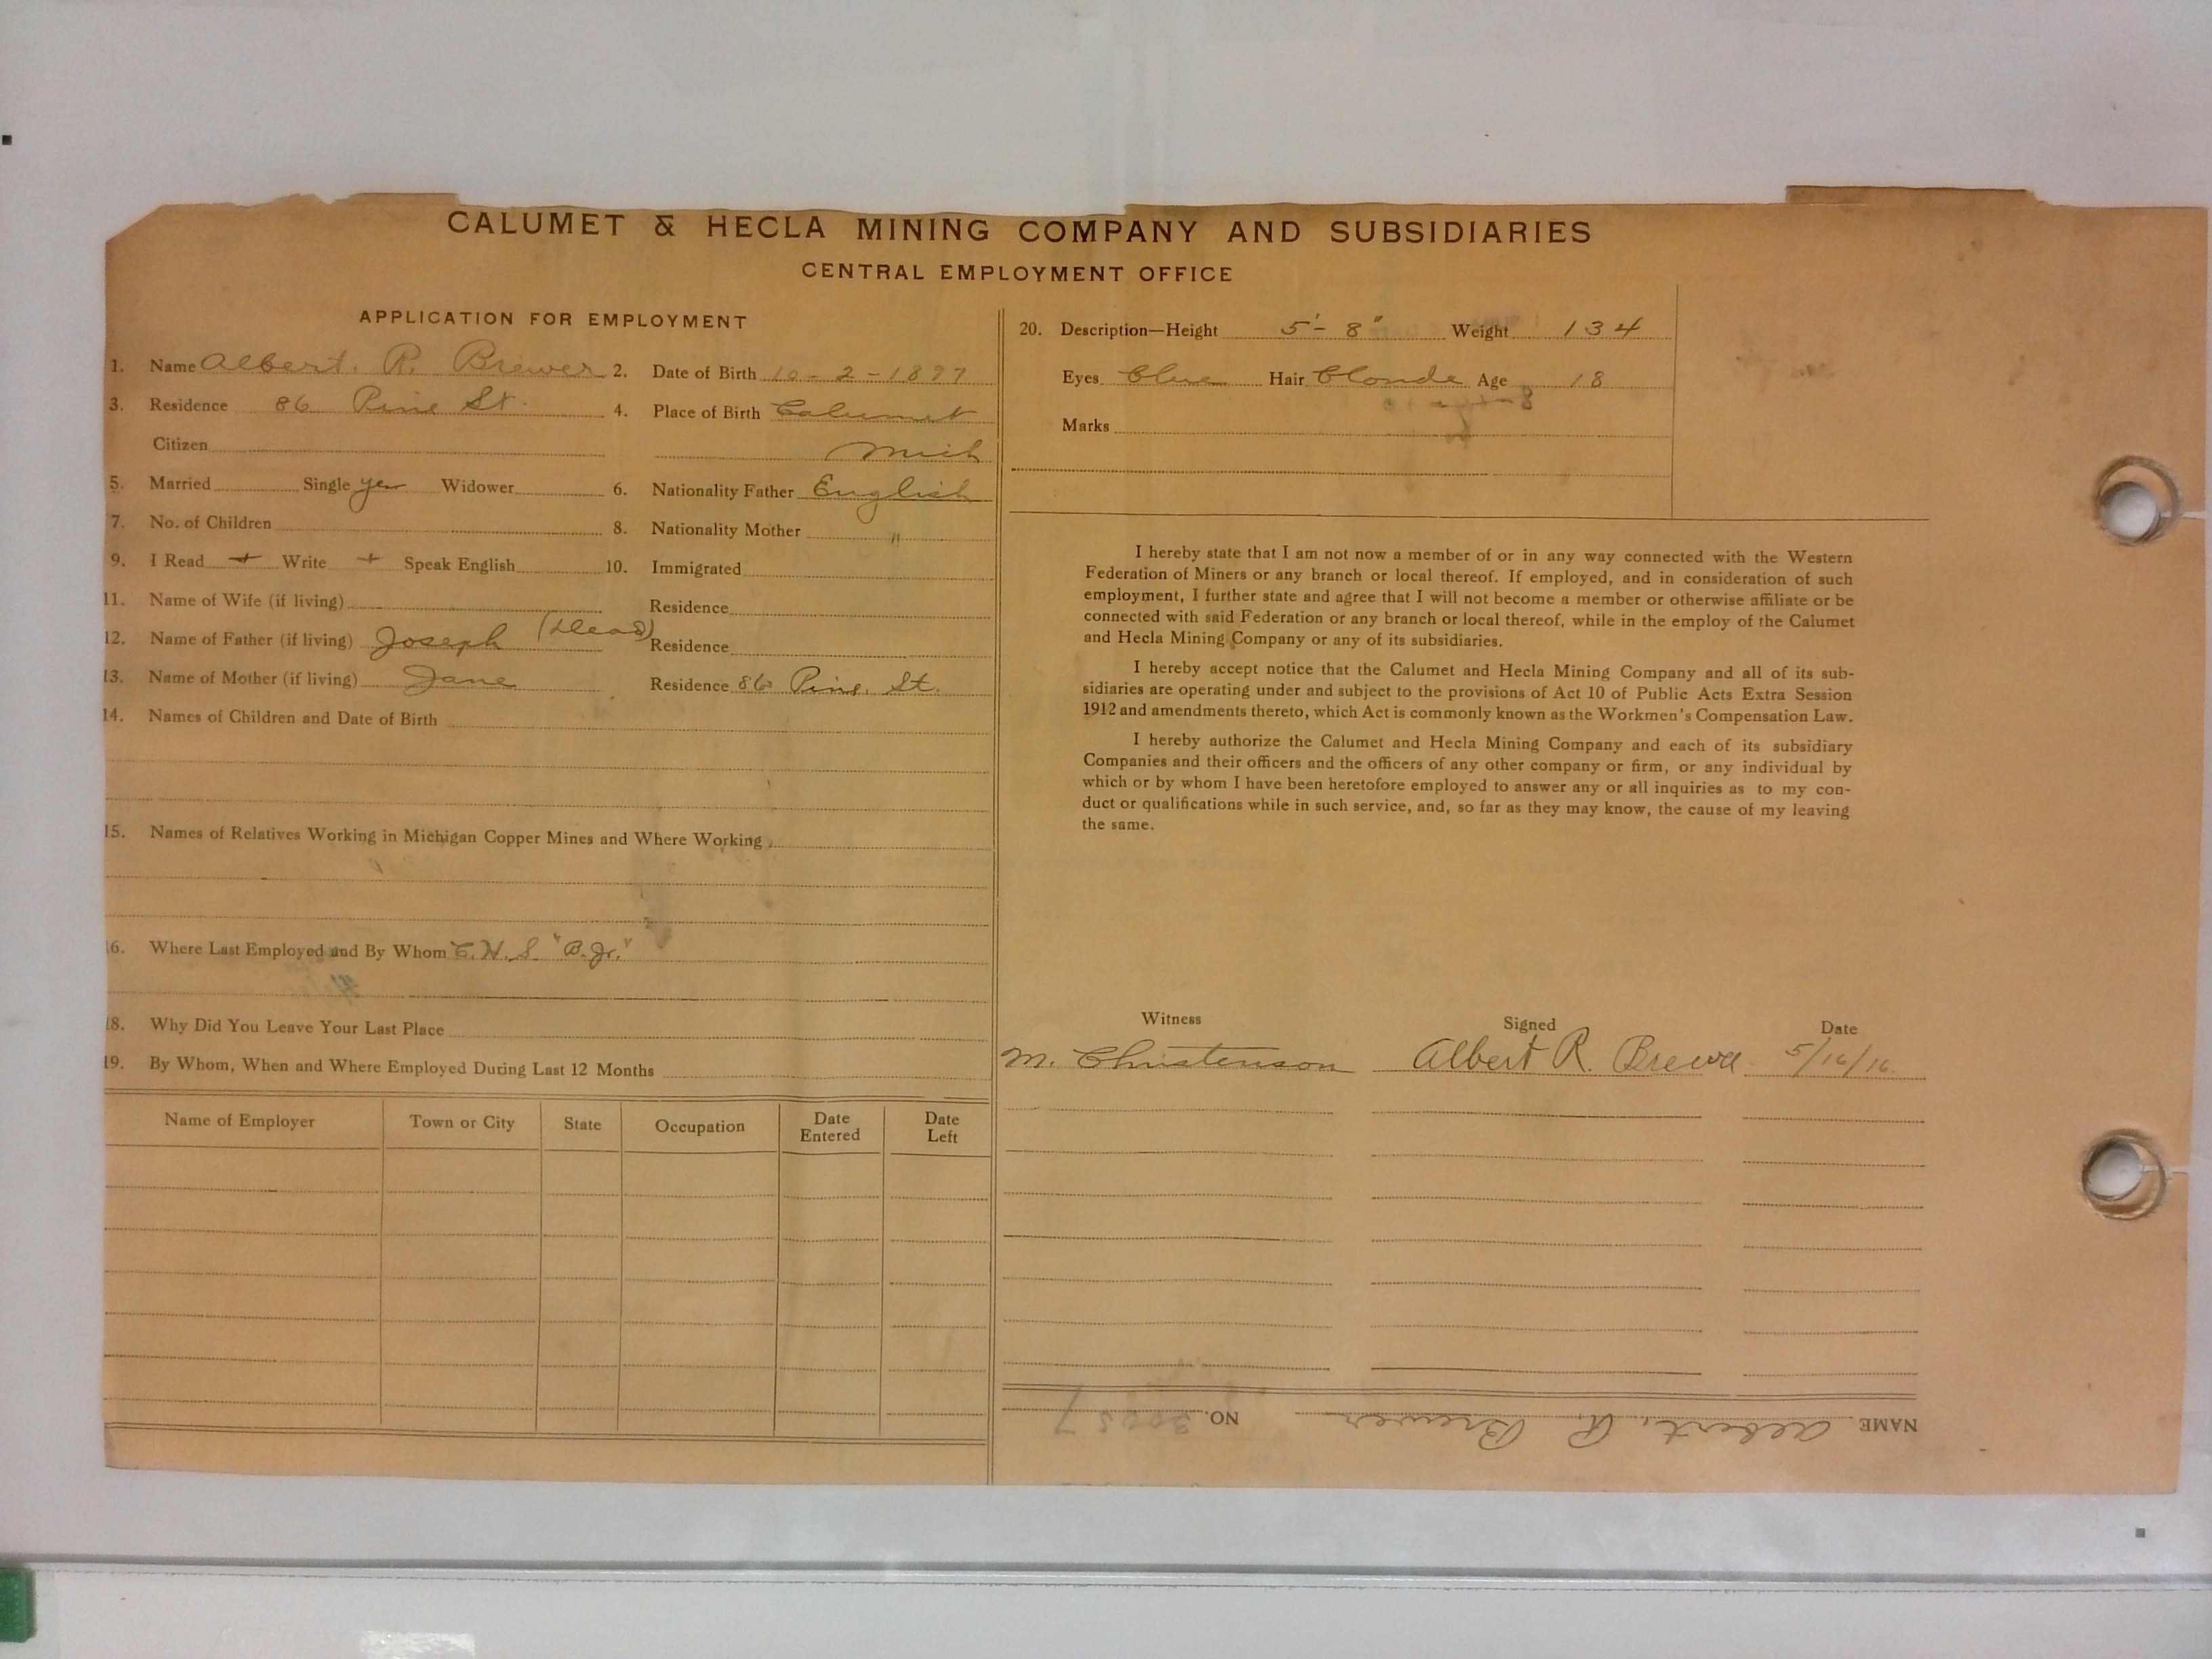 CALUMET & HECLA MINING COMPANY AND SUBSIDIARIES
CENTRAL EMPLOYMENT OFFICE
APPLICATION FOR EMPLOYMENT
1. Name Albert. R. Brewer 2. Date of Birth 10-2-1897
3. Residence 86 Pine St. 4. Place of Birth Calumet
Citizen Mich
5. Married Single yes Widower 6. Nationality Father English
7. No. of Children 8. Nationality Mother "
9. I Read + Write + Speak English 10. Immigrated
11. Name of Wife (if living) Residence
12. Name of Father (if living) Joseph (Dead) Residence
13. Name of Mother (if living) Jane Residence 86 Pine. St.
14. Names of Children and Date of Birth
15. Names of Relatives Working in Michigan Copper Mines and Where Working
16. Where Last Employed and By Whom C.H.S. "B.Jr."
18. Why Did You Leave Your Last Place
19. By Whom, When and Where Employed During Last 12 Months
Name of Employer Town or City State Occupation Date Entered Date Left
20. Description—Height 5'-8" Weight 134
Eyes Blue Hair Blonde Age 18
Marks
I hereby state that I am not now a member of or in any way connected with the Western
Federation of Miners or any branch or local thereof. If employed, and in consideration of such
employment, I further state and agree that I will not become a member or otherwise affiliate or be
connected with said Federation or any branch or local thereof, while in the employ of the Calumet
and Hecla Mining Company or any of its subsidiaries.
I hereby accept notice that the Calumet and Hecla Mining Company and all of its sub-
sidiaries are operating under and subject to the provisions of Act 10 of Public Acts Extra Session
1912 and amendments thereto, which Act is commonly known as the Workmen's Compensation Law.
I hereby authorize the Calumet and Hecla Mining Company and each of its subsidiary
Companies and their officers and the officers of any other company or firm, or any individual by
which or by whom I have been heretofore employed to answer any or all inquiries as to my con-
duct or qualifications while in such service, and, so far as they may know, the cause of my leaving
the same.
Witness Signed Date
M. Christenson Albert R. Brewer 5/16/16.
NAME Albert. R. Brewer NO.